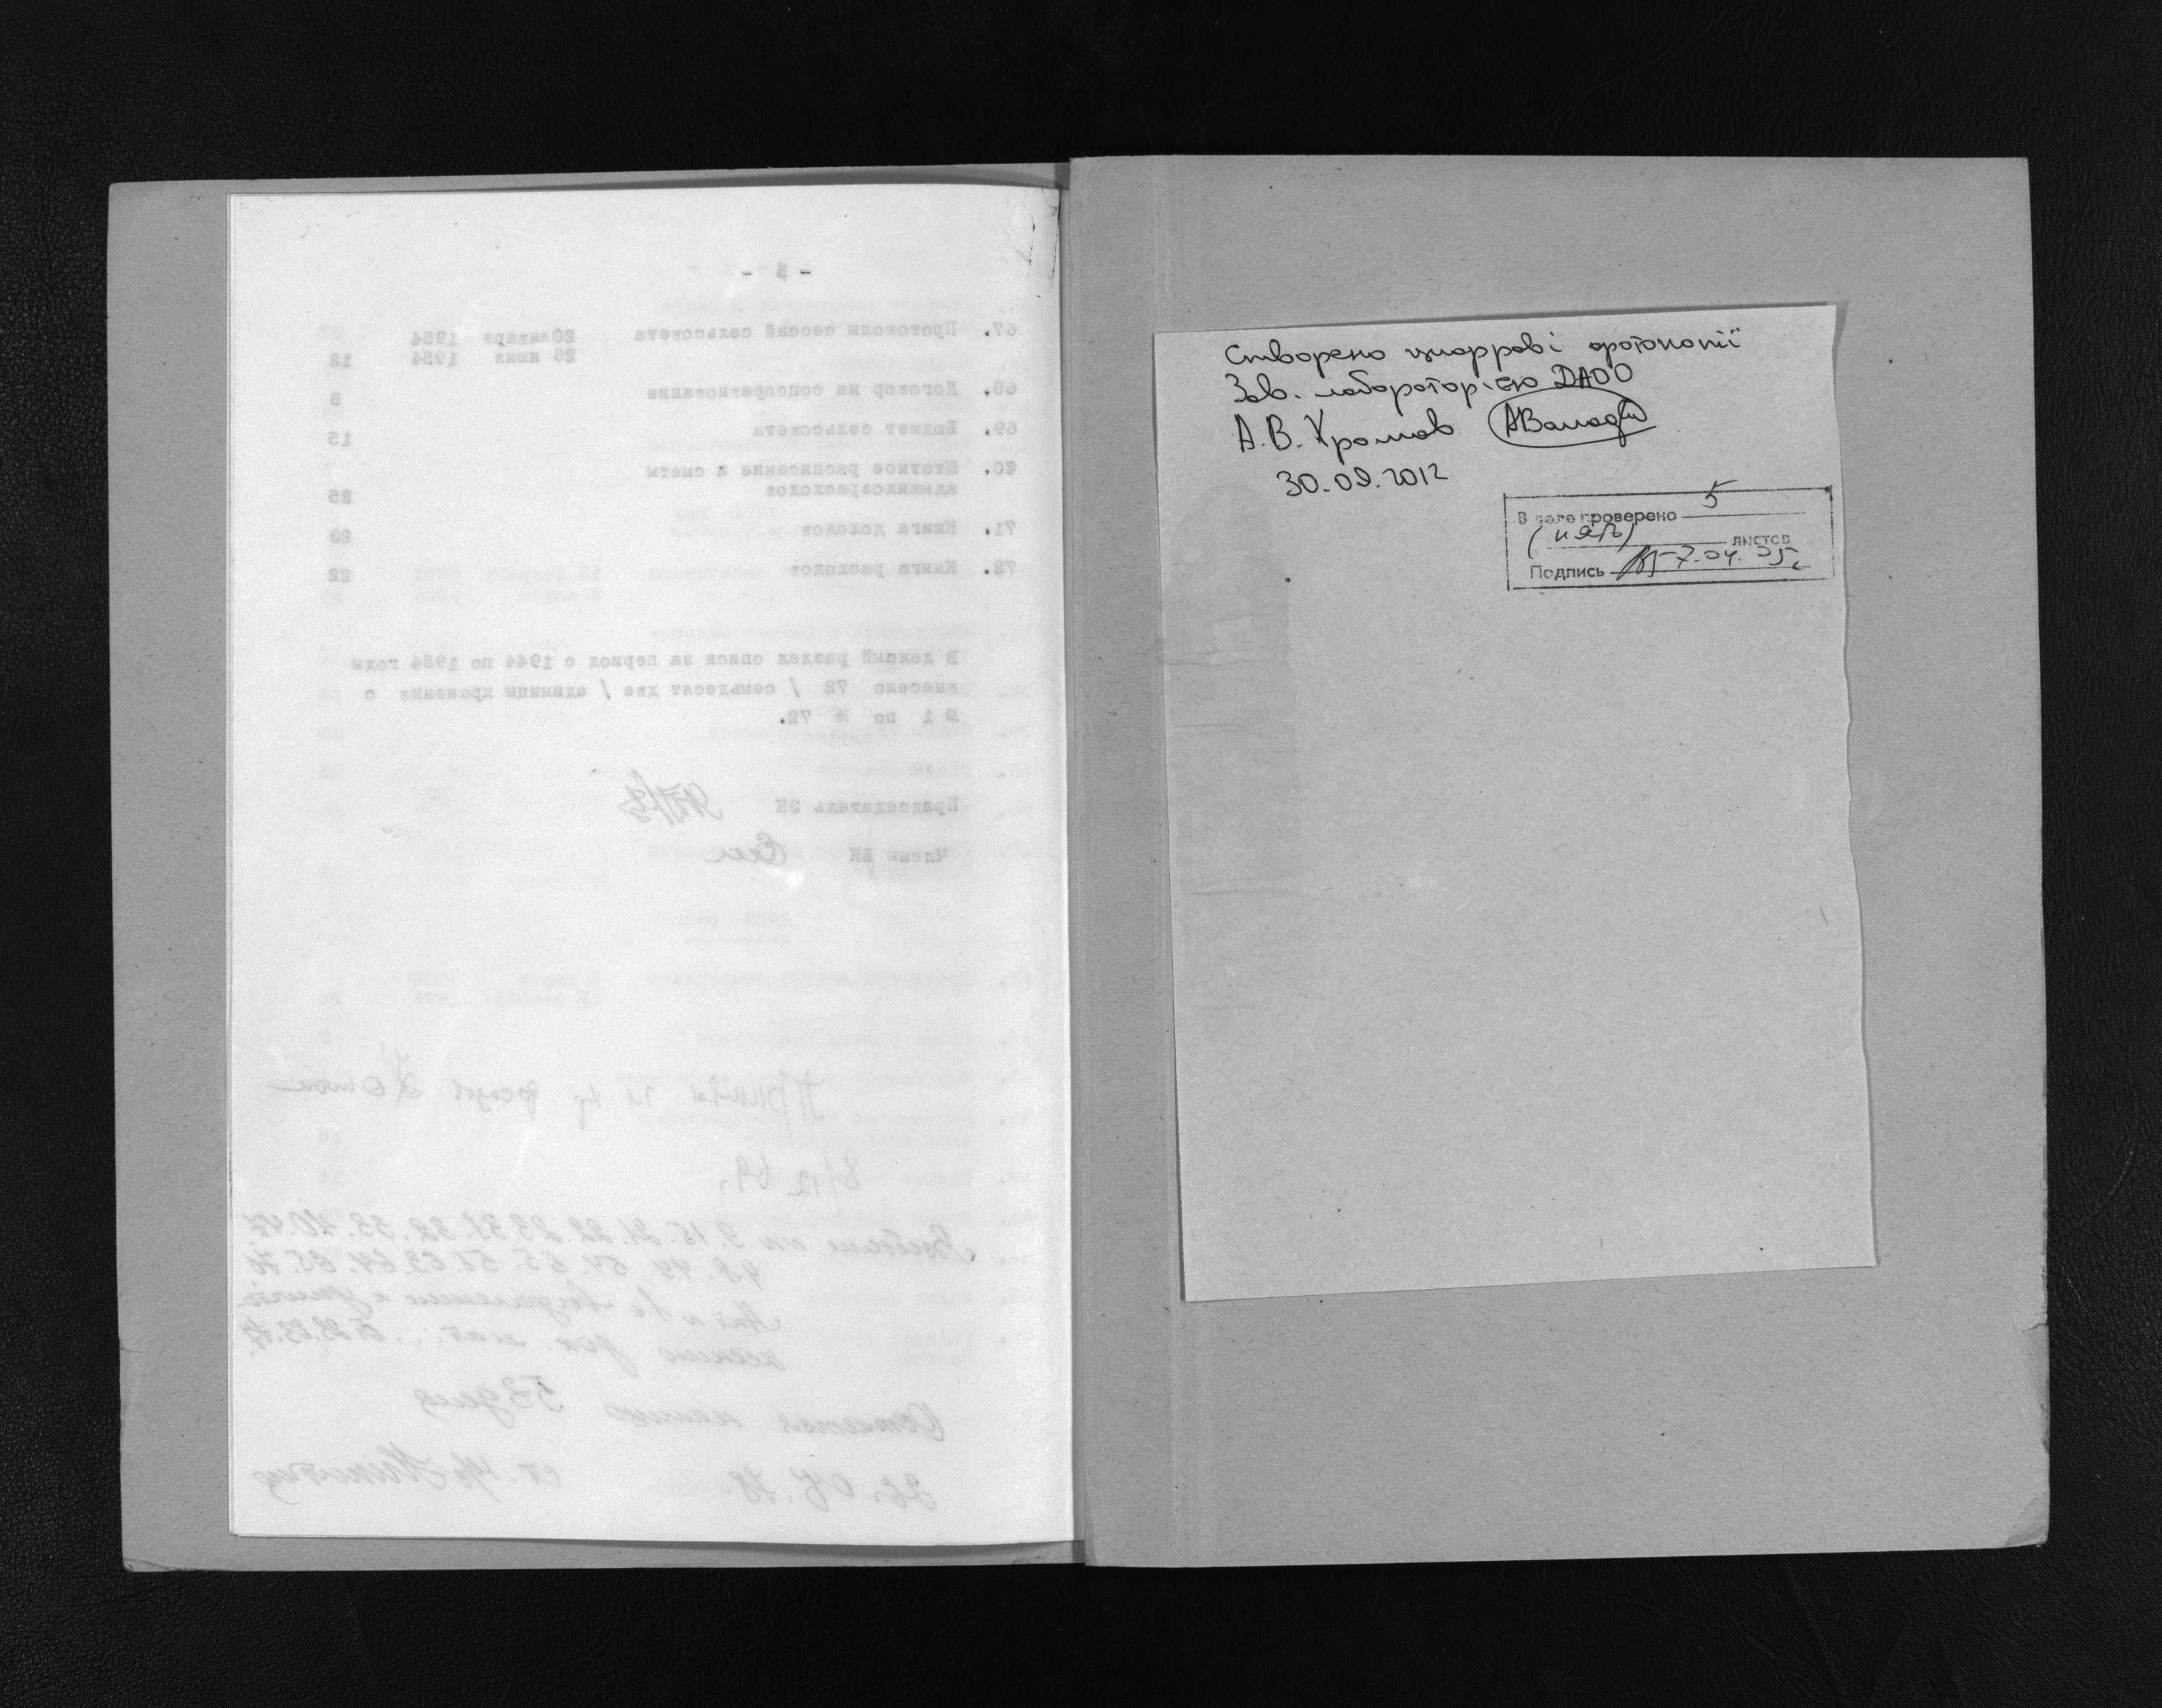 - 5 -
67. Протоколы сессий сельсовета 20 января 1954
26 июня 1954 12
68. Договор на соцсоревнование 8
69. Бюджет сельсовета 15
70. Штатное расписание и сметы
админхозрасходов 25
71. Книга доходов 29
72. Книга расходов 22
В данный раздел описи за период с 1944 по 1954 годы
внесено 72 / семьдесят две / единицы хранения с
№ 1 по № 72.
Председатель ЭК
Члены ЭК
8/12 69.
9. 15. 21. 22. 23 31. 32. 33. 40.
48. 49 54. 55.
53 дела
26. 04. 78.
Створено цифрові фотокопії
Зав. лабораторією ДАОО
А.В. Хромов
30.09.2012
В деле проверено 5
(пять) листов
Подпись 7.04.